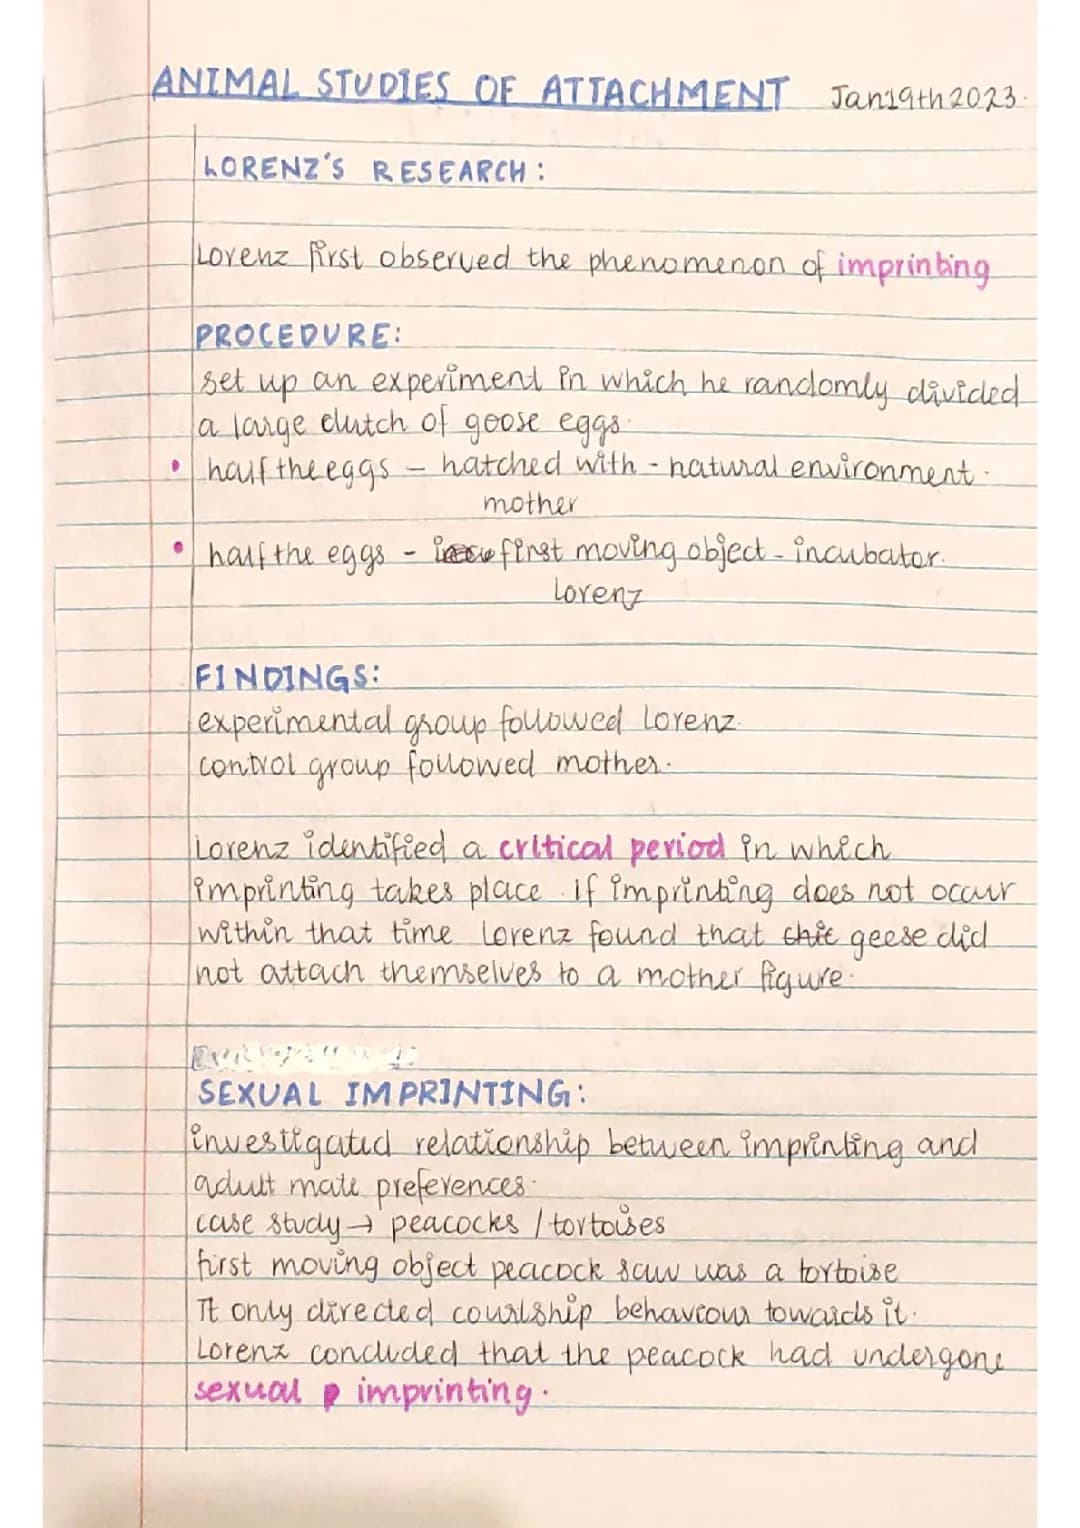 ANIMAL STUDIES OF ATTACHMENT Jan19th2023.
LORENZ'S RESEARCH:
Lorenz first observed the phenomenon of imprinting
PROCEDURE:
set up an experiment in which he randomly divided
a large clutch of goose eggs.
• half the eggs - hatched with - natural environment.
mother
• half the eggs - first moving object - incubator.
Lorenz
FINDINGS:
experimental group followed Lorenz.
control group followed mother.
Lorenz identified a critical period in which
imprinting takes place. if imprinting does not occur
within that time Lorenz found that geese did
not attach themselves to a mother figure.
SEXUAL IMPRINTING:
investigated relationship between imprinting and
adult mate preferences.
case study → peacocks / tortoises
first moving object peacock saw was a tortoise
It only directed courtship behaviour towards it.
Lorenz concluded that the peacock had undergone
sexual imprinting.